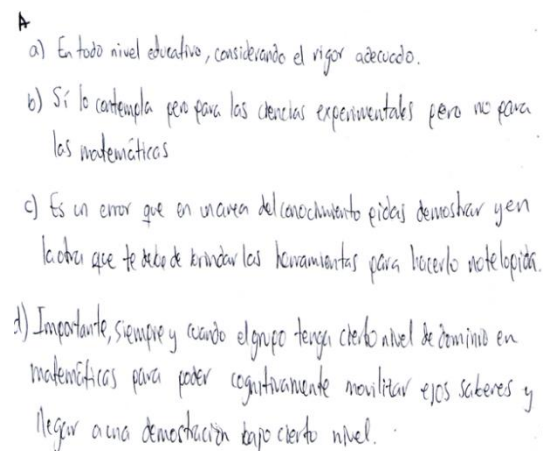 A
a) En todo nivel educativo, considerando el rigor adecuado.
b) Sí lo contempla pero para las ciencias experimentales pero no para
las matemáticas
c) Es un error que en un area del conocimiento pidas demostrar y en
la otra que te debe de brindar las herramientas para hacerlo no te lo pida.
d) Importante, siempre y cuando el grupo tenga cierto nivel de dominio en
matemáticas para poder cognitivamente movilizar esos saberes y
llegar a una demostración bajo cierto nivel.